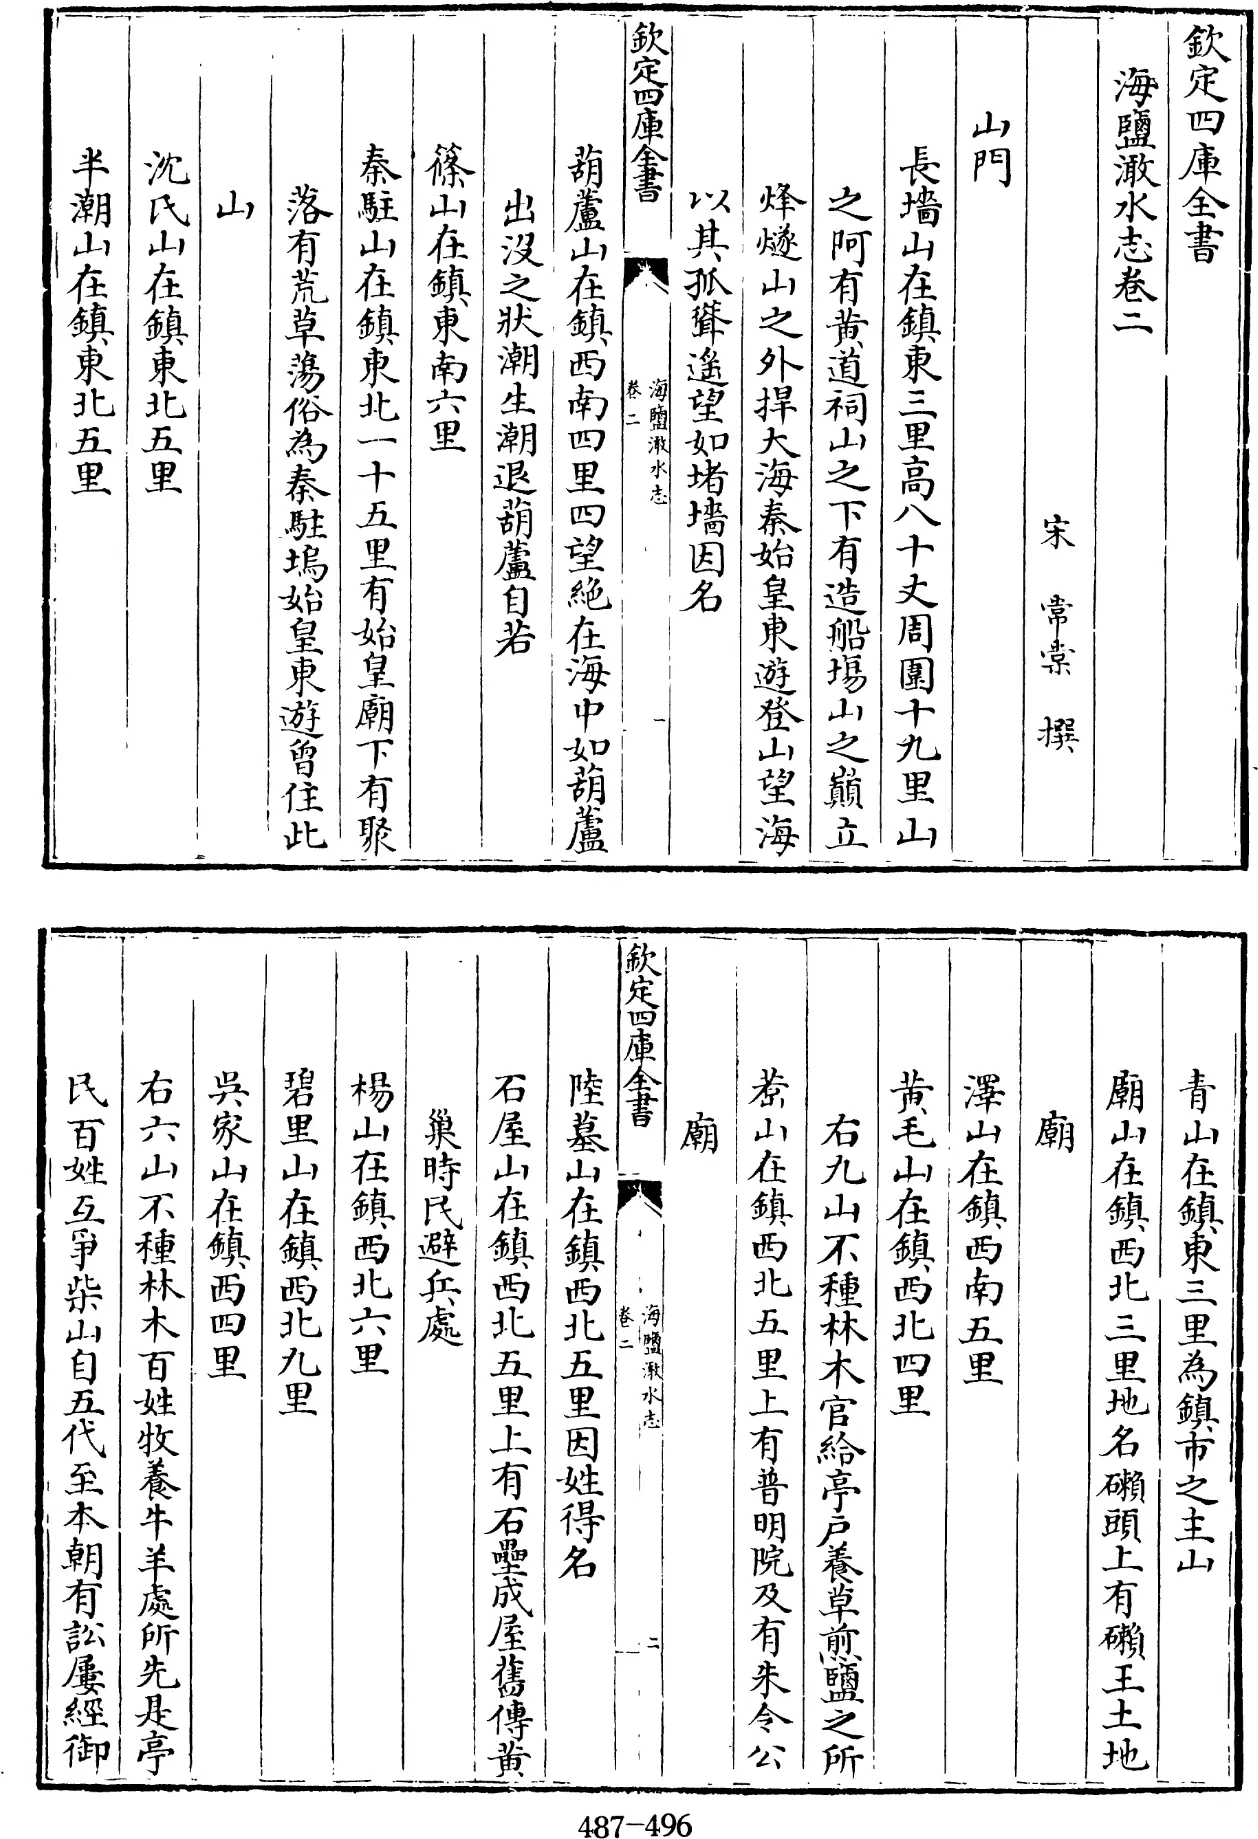 欽定四庫全書
海鹽澉水志卷二
宋　常棠　撰
山門
長墻山在鎮東三里高八十丈周圍十九里山
之阿有黄道祠山之下有造船塲山之巔立
烽燧山之外捍大海秦始皇東遊登山望海
以其孤聳遥望如堵墻因名
欽定四庫全書
海鹽澉水志
卷二
一
葫蘆山在鎮西南四里四望絶在海中如葫蘆
出沒之狀潮生潮退葫蘆自若
篠山在鎮東南六里
秦駐山在鎮東北一十五里有始皇廟下有聚
落有荒草蕩俗為秦駐塢始皇東遊曾住此
山
沈氏山在鎮東北五里
半潮山在鎮東北五里
青山在鎮東三里為鎮市之主山
廟山在鎮西北三里地名磡頭上有磡王土地
廟
澤山在鎮西南五里
黄毛山在鎮西北四里
右九山不種林木官給亭戸養草煎鹽之所
惹山在鎮西北五里上有普明院及有朱令公
廟
欽定四庫全書
海鹽澉水志
卷二
二
陸墓山在鎮西北五里因姓得名
石屋山在鎮西北五里上有石壘成屋舊傳黄
巢時民避兵處
楊山在鎮西北六里
碧里山在鎮西北九里
吳家山在鎮西四里
右六山不種林木百姓牧養牛羊處所先是亭
民百姓互爭柴山自五代至本朝有訟屢經御
487-496